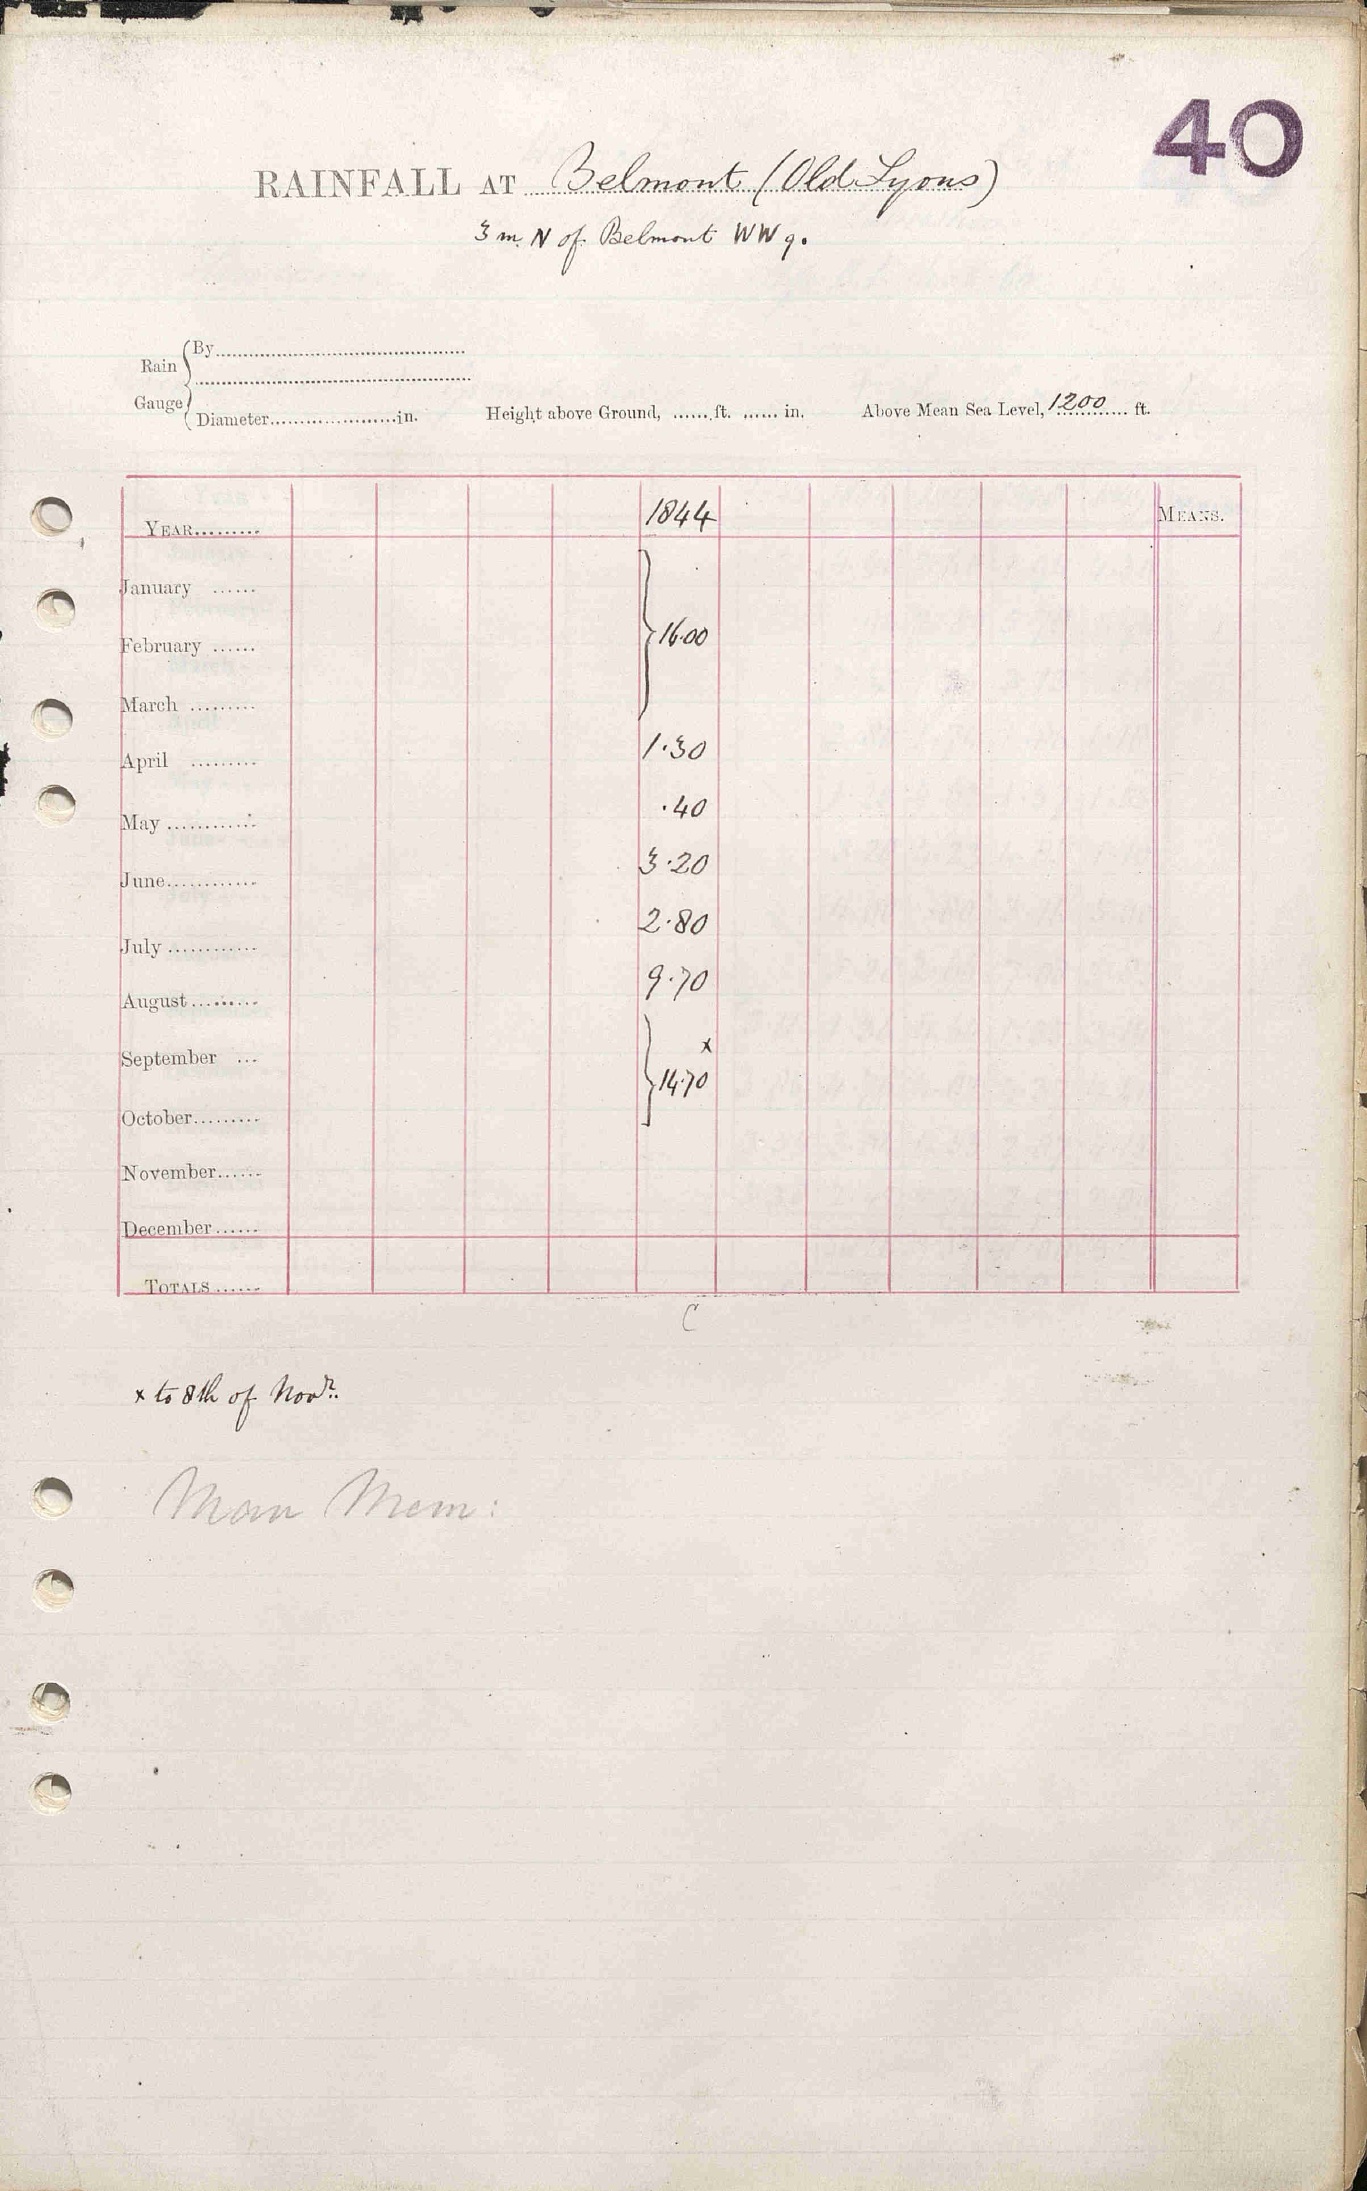 40
RAINFALL AT Belmont (Old Lyons)
3 m N of Belmont WW g.
Rain Gauge { By..............................
..............................
Diameter.....................in. Height above Ground, ......ft. ...... in. Above Mean Sea Level, 1200 ft.
YEAR......... 1844 MEANS.
January ......
February ...... } 16.00
March .........
April ......... 1.30
May ............ .40
June............ 3.20
July ............ 2.80
August......... 9.70
September ... x
} 14.70
October.........
November......
December......
TOTALS ......
C
x to 8th of Novr.
Man Mem: